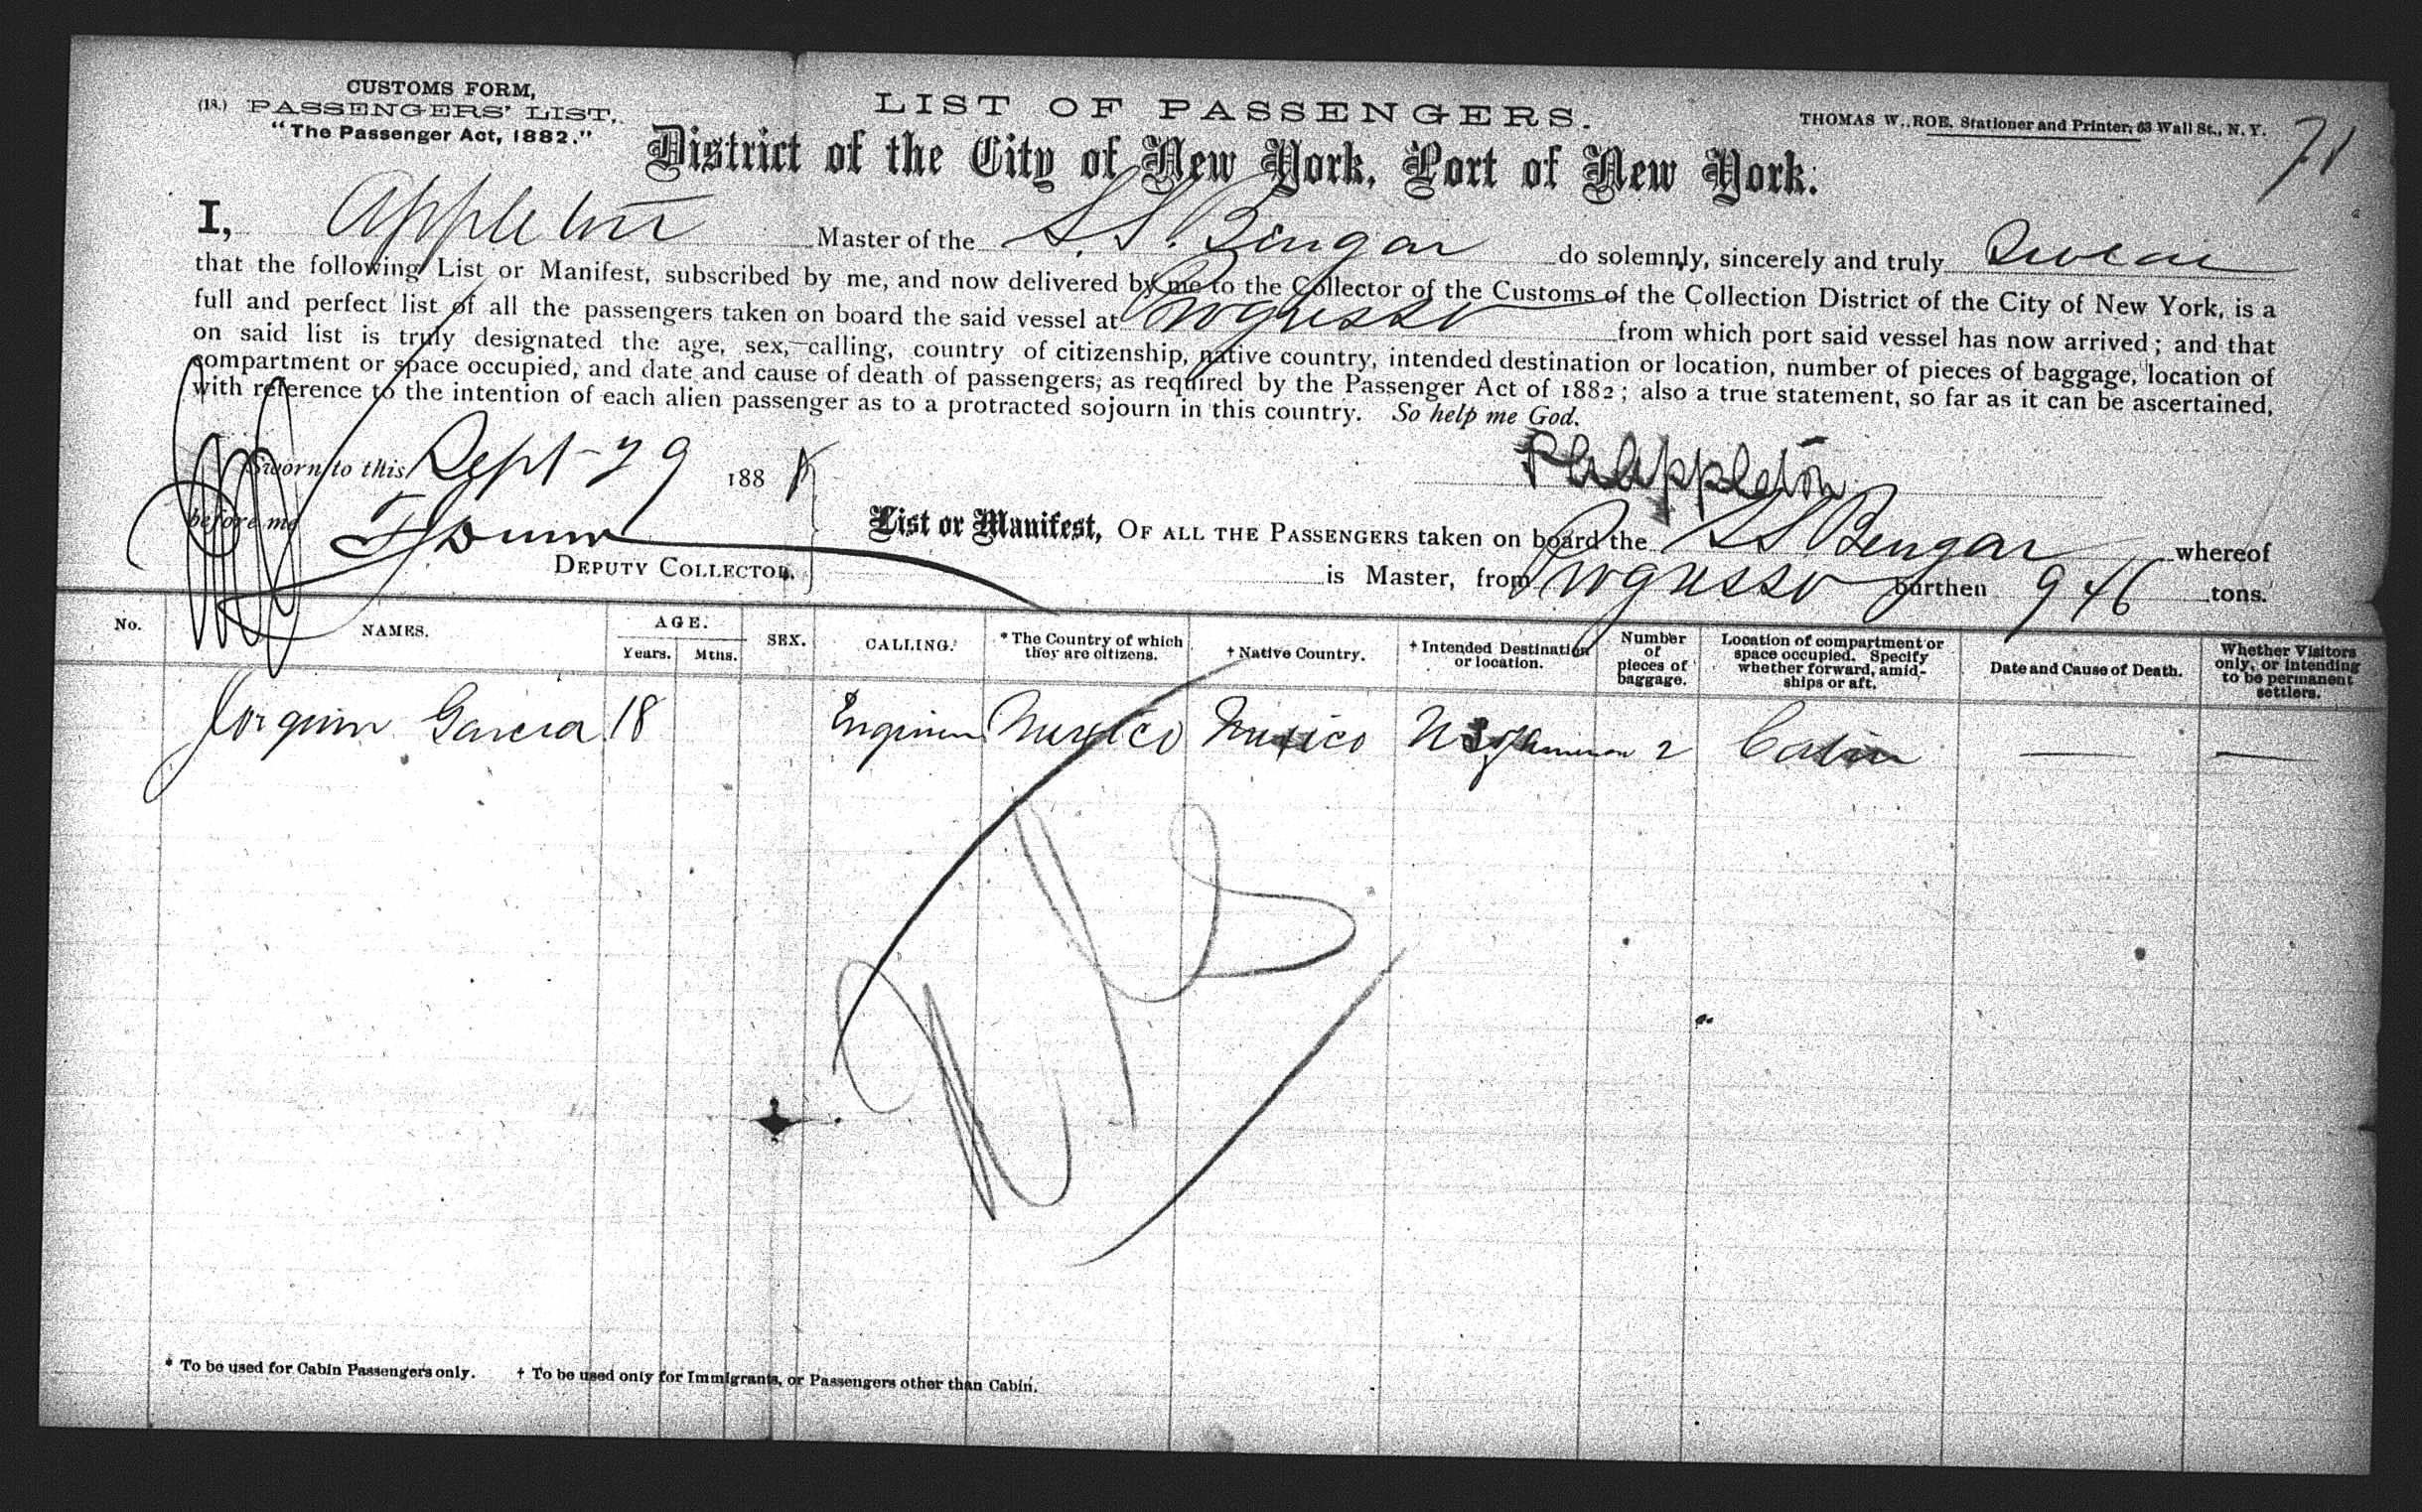 CUSTOMS FORM,
(18.) PASSENGERS' LIST,
"The Passenger Act, 1882."
LIST OF PASSENGERS.
THOMAS W. ROE, Stationer and Printer, 63 Wall St., N. Y.
71
District of the City of New York, Port of New York.
I, Appleton Master of the S.S. Bengar do solemnly, sincerely and truly Swear
that the following List or Manifest, subscribed by me, and now delivered by me to the Collector of the Customs of the Collection District of the City of New York, is a
full and perfect list of all the passengers taken on board the said vessel at Progresso from which port said vessel has now arrived; and that
on said list is truly designated the age, sex, calling, country of citizenship, native country, intended destination or location, number of pieces of baggage, location of
compartment or space occupied, and date and cause of death of passengers, as required by the Passenger Act of 1882; also a true statement, so far as it can be ascertained,
with reference to the intention of each alien passenger as to a protracted sojourn in this country. So help me God.
Sworn to this Sept 29 188
Appleton
before me
DEPUTY COLLECTOR.
List or Manifest, OF ALL THE PASSENGERS taken on board the SS Bengar whereof
is Master, from Progresso burthen 946 tons.
No. NAMES. AGE. Years. Mths. SEX. CALLING. * The Country of which they are citizens. † Native Country. † Intended Destination or location. Number of pieces of baggage. Location of compartment or space occupied. Specify whether forward, amidships or aft. Date and Cause of Death. Whether Visitors only, or intending to be permanent settlers.
Jorquim Garcia 18 Mexico Mexico 2 Cabin — —
* To be used for Cabin Passengers only. † To be used only for Immigrants, or Passengers other than Cabin.